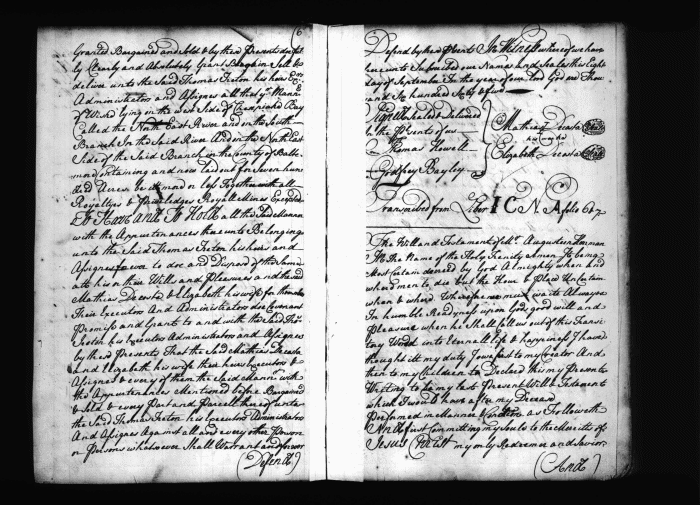 6
Granted Bargained and Sold & by these Presents do fully
by Clearly and Absolutely Grant Bargain Sell &
deliver unto the Said Thomas Feeton his heirs Exe
Administrators and Assignes all that
of Wood lying on the west Side of Chesapeake Bay
Called the North East River and in the South
Branch In the Said River And on the North East
Side of the Said Branch in the County of Balte
more Containing and now Laid out for Seven hun
dred Acres be it more or less Together with all
Royaltyes & Priviledges Royall Mines Excepted
To Have and To Hold all the Said Mannor
with the Appurtenances thereunto Belonging
unto the Said Thomas Feeton his heirs and
Assignes for ever to doe and Dispose of the Same
att his or their Wills and Pleasures and the said
Mathias Decosta & Elizabeth his wife for themselves
Their Executors And Administrators doe Covenant
Promise and Grant to and with the Said Thos
Feeton his Executors Administrators and Assignes
by these Presents That the Said Mathias Decosta
and Elizabeth his wife their heirs Executors &
Assignes & every of them the Said Mannor with
the Appurtenances Mentioned before Bargained
& Sold & every Part and Parcell thereof unto
the Said Thomas Feeton his Executors Administrators
And Assignes Against all and every other Person
or Persons whatsoever Shall Warrant and for ever
(Defend)
Defend by these Presents In Witness whereof we have
here unto Subscribed our Names And Seales this Eight
day of September In the year of our Lord God one Thou
sand Six hundred Sixty
Sign'd Sealed & Delivered
In the Presents of us
Thomas Howell
Godfrey Bayley
Mathias Decosta
Elizabeth Decosta
Transcribed from Liber I C N A folio 617
The Will and Testament of Mr Augusteen Herman
In the Name of the Holy Trinity Amen It being
Most Certain decreed by God Almighty when and
where men to die but the Hour & Place Un Certain
when & where Wherefore we must waite Alwayes
In humble Readyness upon Gods good will and
Pleasure when he Shall fall us out of this Transi
tory World into Eternall life & happiness I have
thought itt my duty I owe first to my Creator And
then to my Children to Declare this my Presents
Writing to be my last Present Will & Testament
which I would have after my Decease
Performed in Manner & as Followeth
And first Committing my Soule to the Mercies of
Jesus Christ my only Redeemer and Saviour
(And)